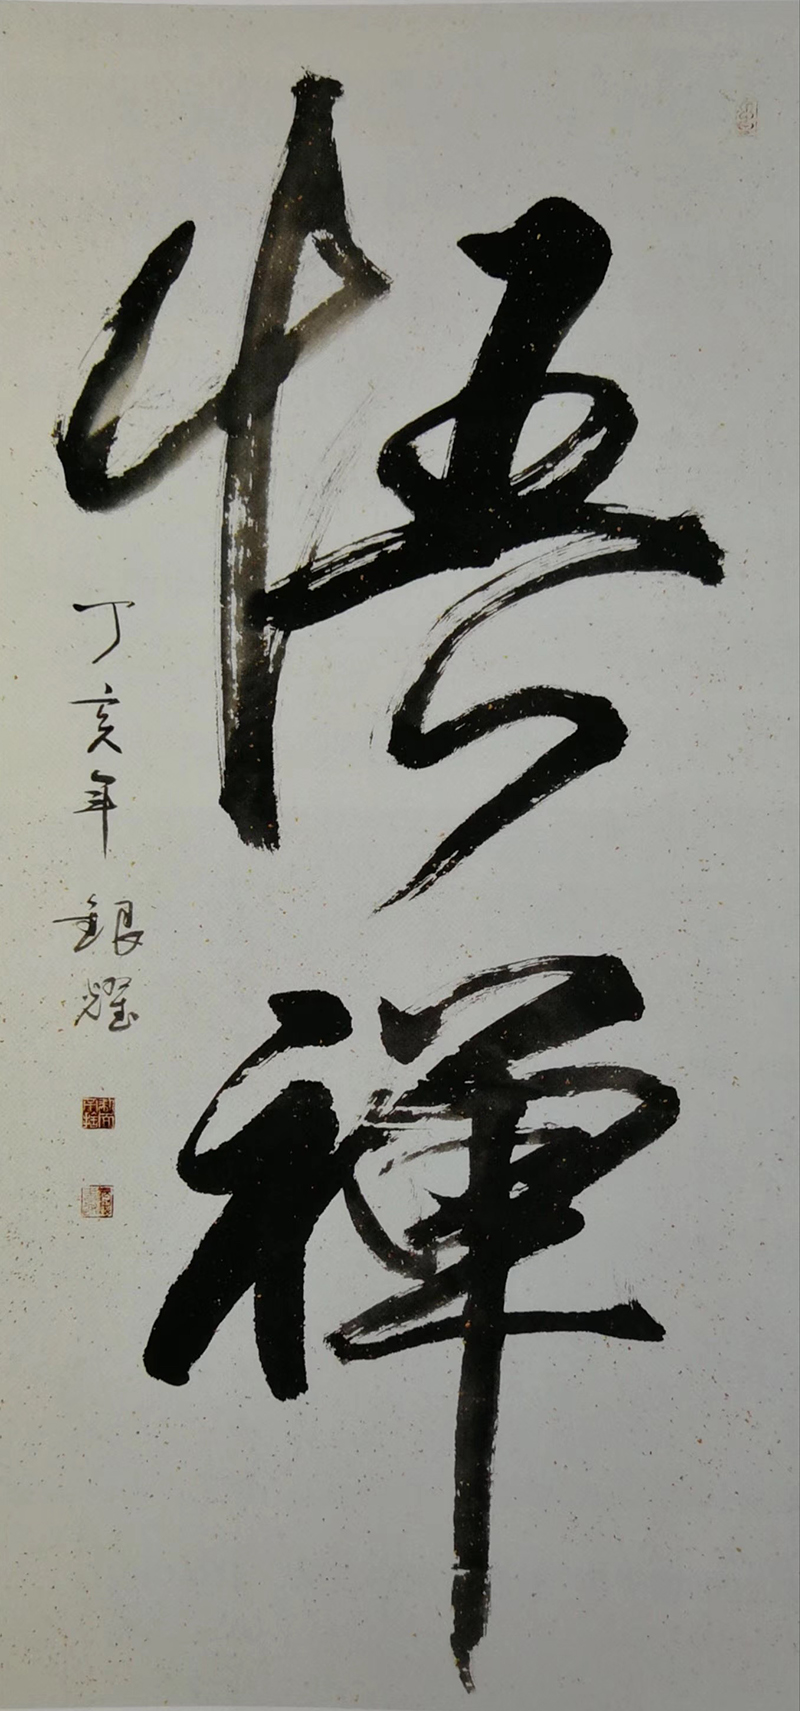 悟禅
丁亥年 銀耀